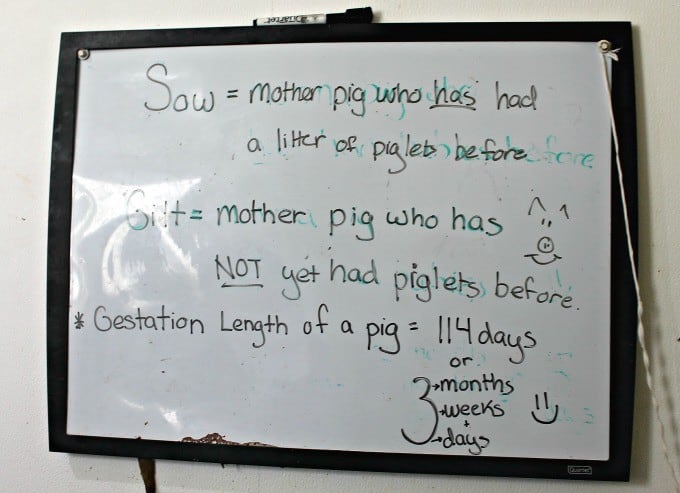 Quartet
Sow = mother pig who has had
a litter of piglets before
Gilt = mother pig who has
NOT yet had piglets before.
* Gestation Length of a pig = 114 days
or
3 → months
→ weeks
+
→ days
Quartet